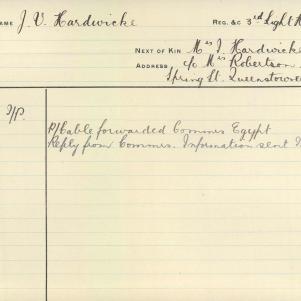 NAME J. V. Hardwicke REG. &C 3rd Light H
NEXT OF KIN Mrs J. Hardwicke
ADDRESS c/o Mrs Robertson
Spring St. Queenstown
I/P.
P/Cable forwarded Commrs Egypt
Reply from Commrs. Information sent